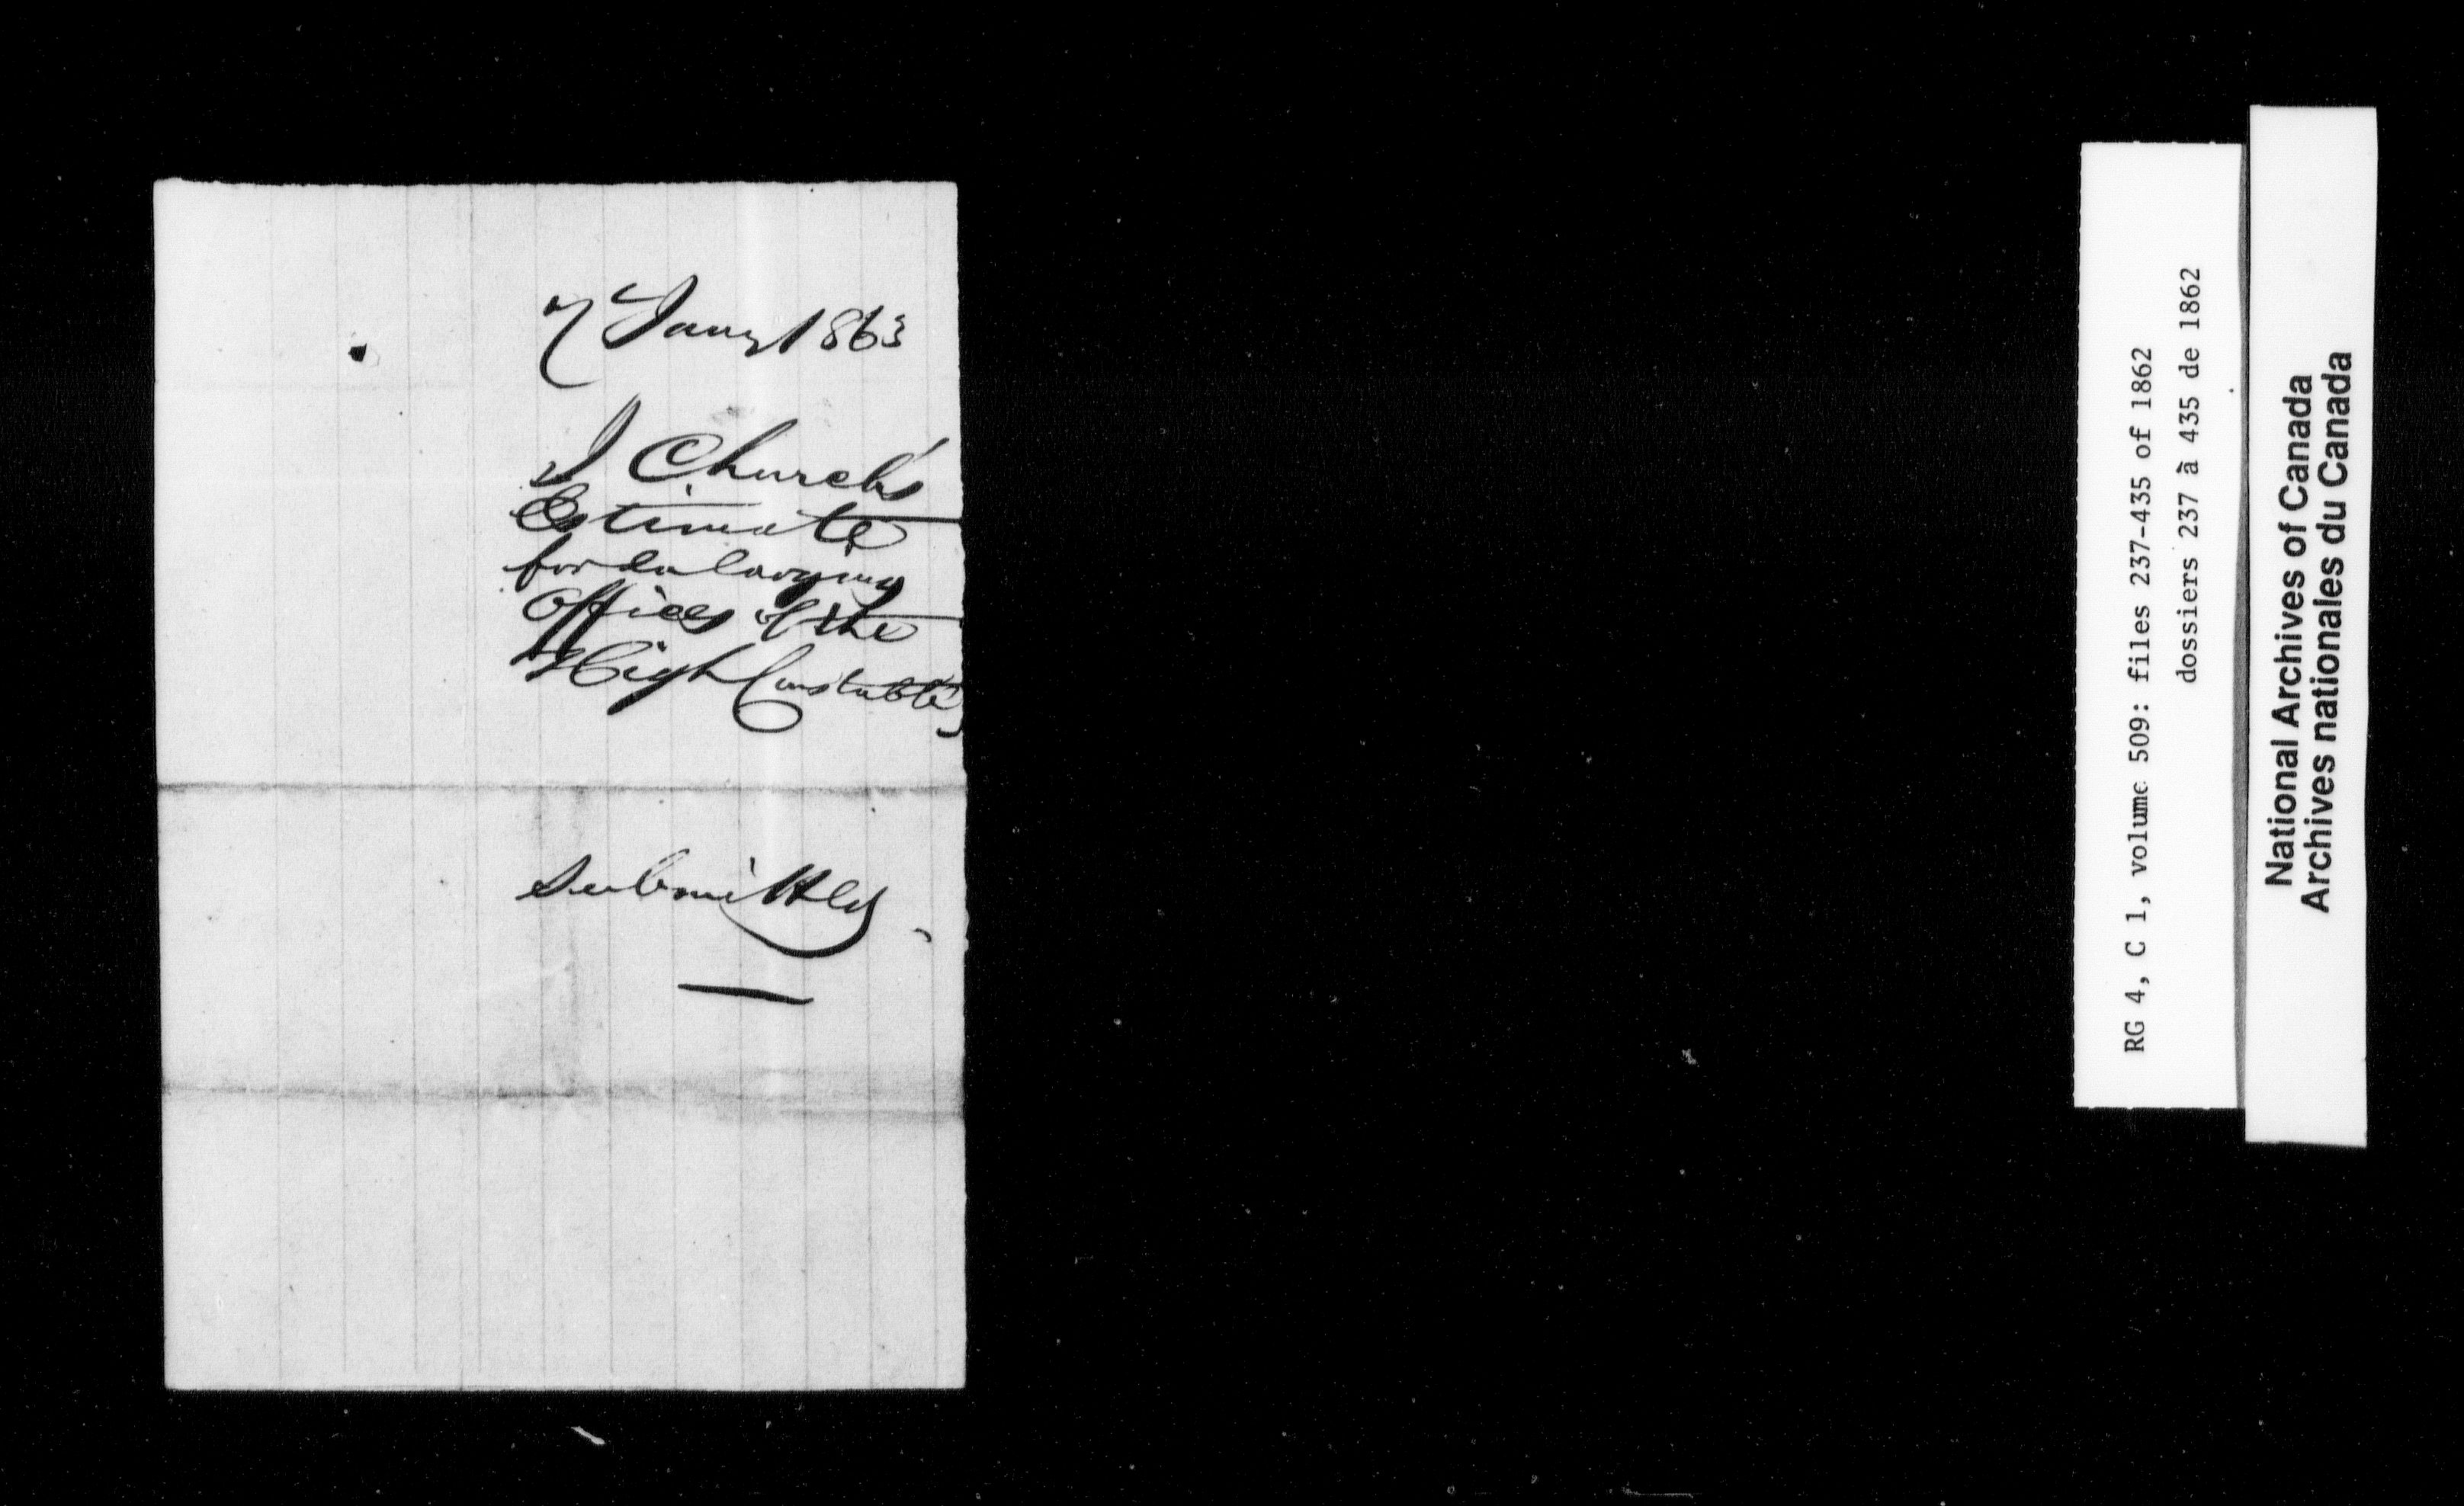 7 Jany 1863
J Church's
Estimate
for enlarging
Offices of the
High Constable,
Submitted
RG 4, C 1, volume 509: files 237-435 of 1862
dossiers 237 à 435 de 1862
National Archives of Canada
Archives nationales du Canada